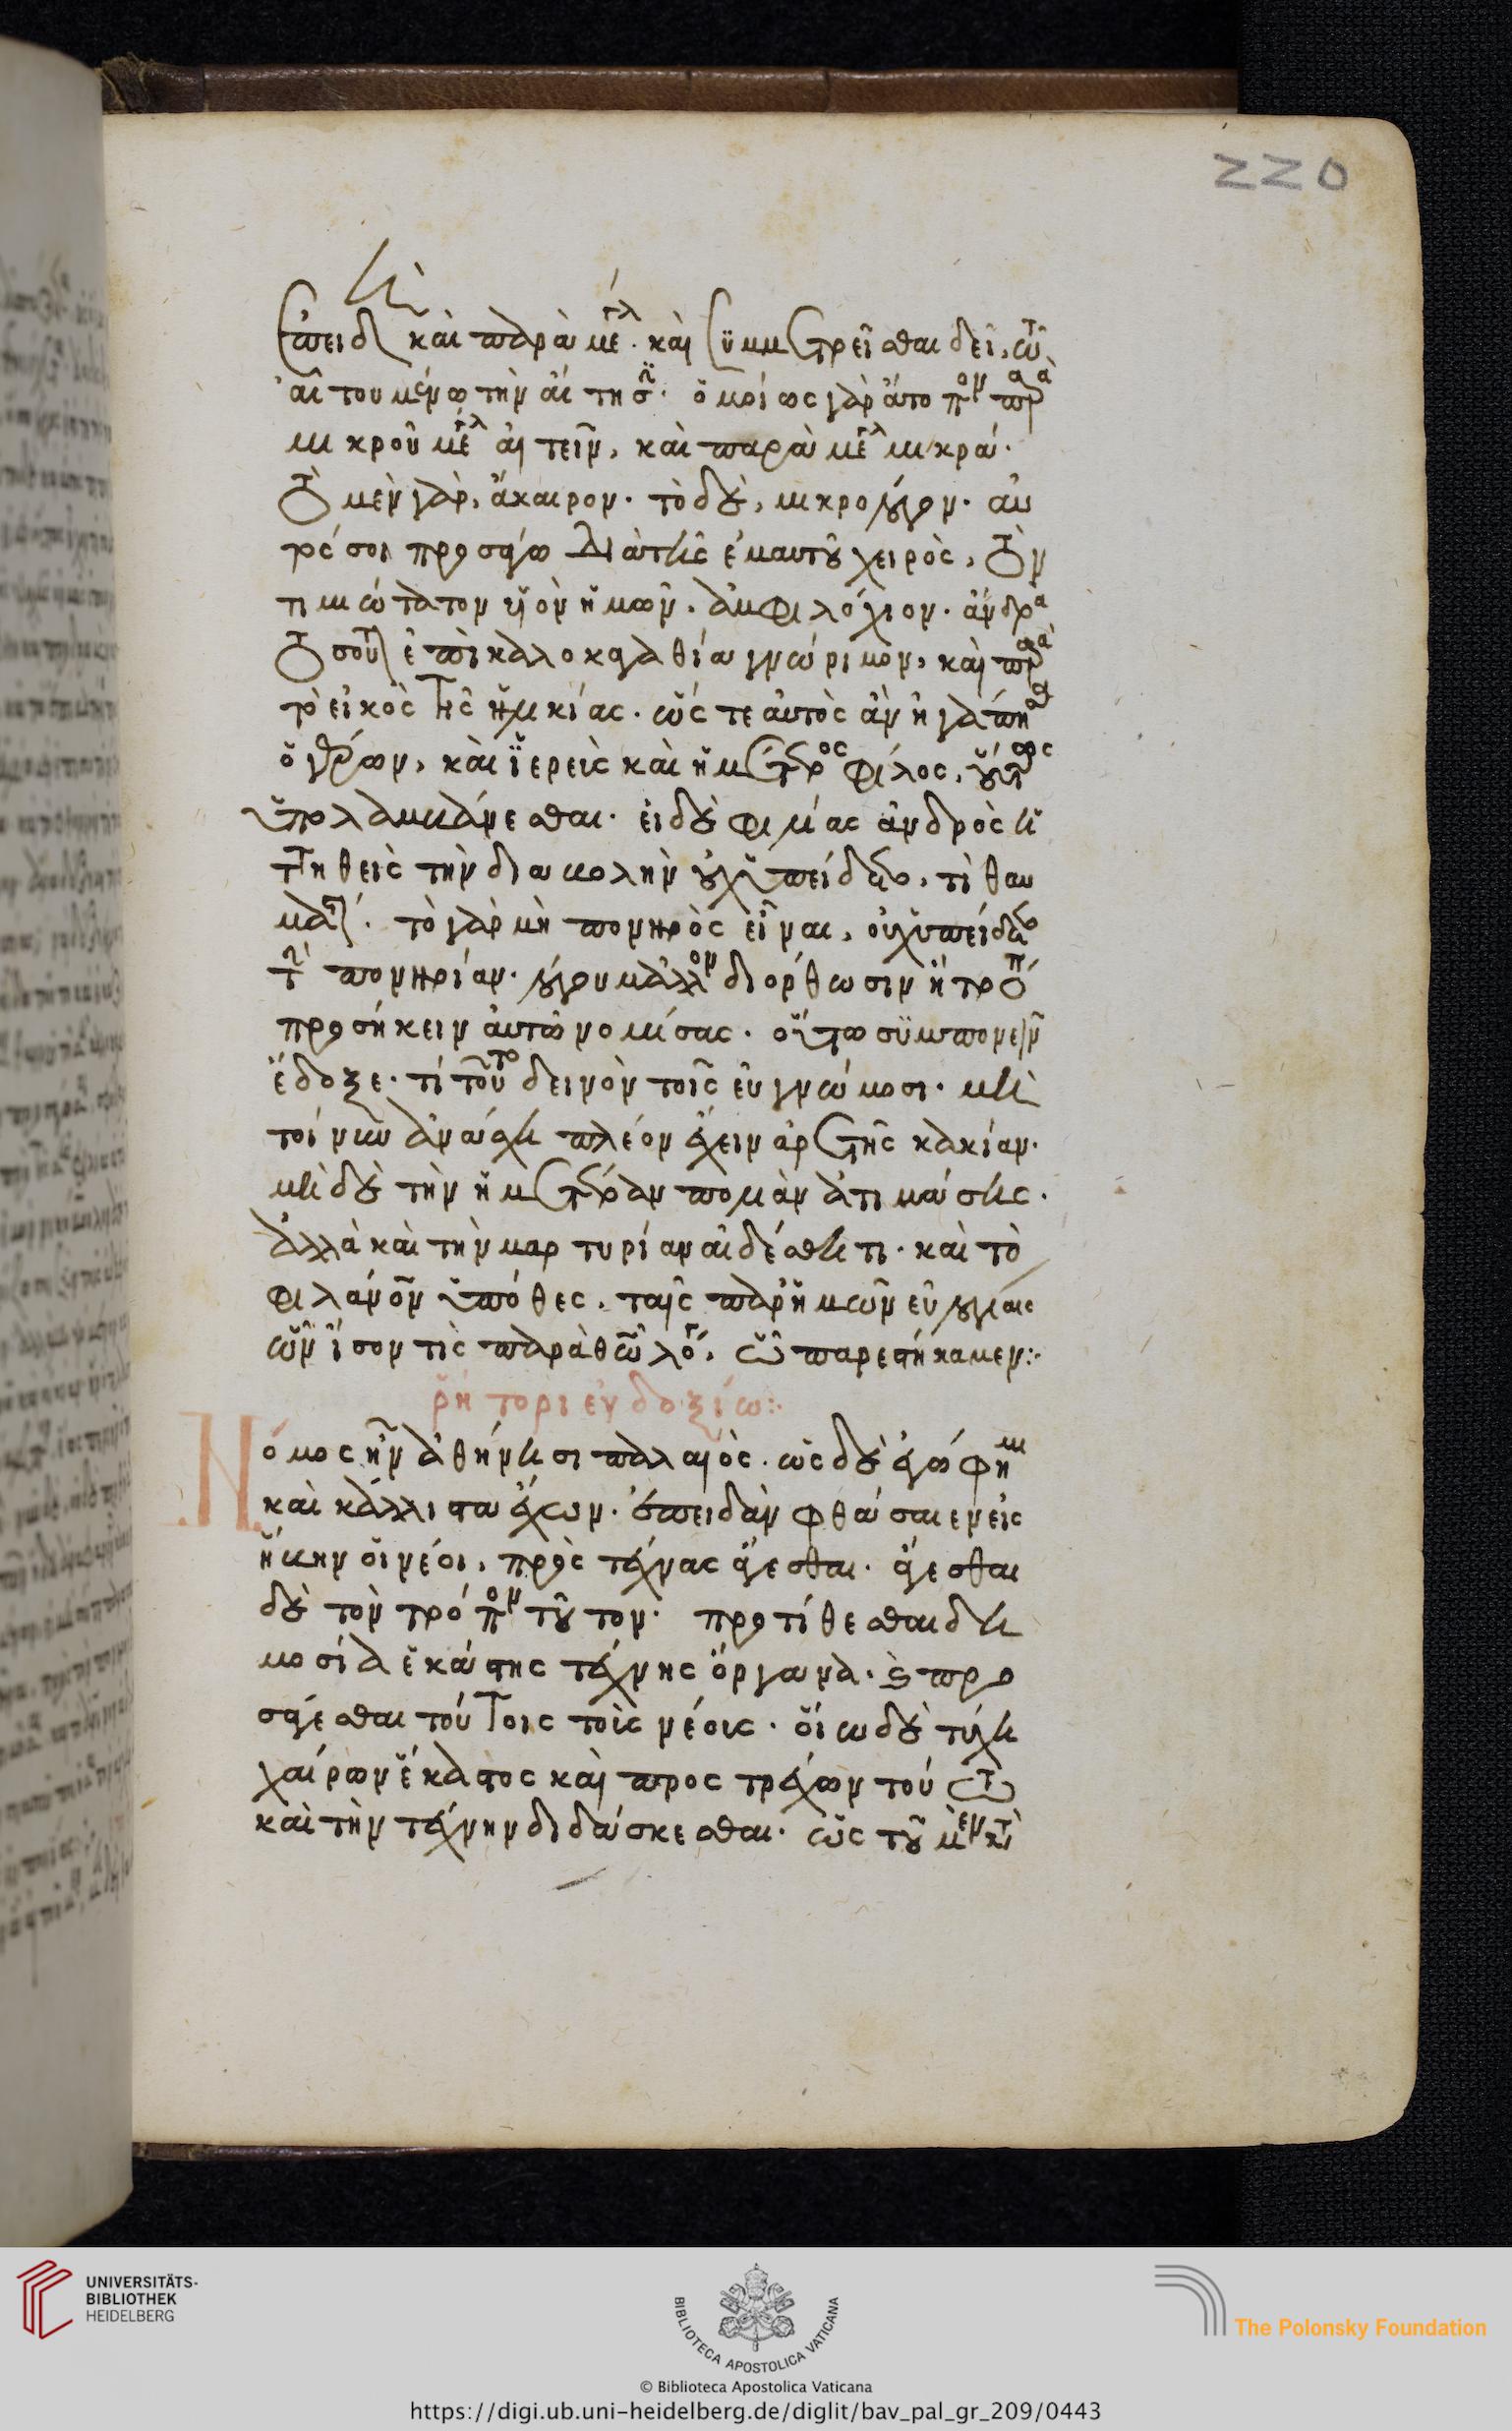 Ἐπειδὴ καὶ παρὰ μεγάλ. καὶ συμμετρεῖσθαι δεῖ, τῷ
αἰτουμένῳ τὴν αἴτησιν. ὁμοίως γὰρ ἄτοπον παρὰ
μικροῦ μεγάλ αἰτεῖν, καὶ παρὰ μεγάλ μικρά.
τὸ μὲν γὰρ, ἄκαιρον. τὸ δὲ, μικρολόγον. αὐ
τός σοι προσάγω διὰ τῆς ἐμαυτοῦ χειρὸς, τὸν
τιμιώτατον υἱὸν ἡμῶν. ἀμφιλόχιον. ἄνδρα
τοσοῦτον ἐπὶ καλοκαγαθίᾳ γνώριμον, καὶ παρὰ
τὸ εἰκὸς τῆς ἡλικίας. ὥς τε αὐτὸς ἂν ἠγάπησα
ὁ γέρων, καὶ ἱερεὺς καὶ ἡμέτερος φίλος, οὕτως
ὑπολαμβάνεσθαι. εἰ δὲ φιλίας ἀνδρὸς ἡτ
τηθεὶς τὴν διαβολὴν οὐχ ὑπείδετο, τί θαυ
μαστόν. τὸ γὰρ μὴ πονηρὸς εἶναι, οὐχ ὑπείδετο
τὴν πονηρίαν. λόγου μᾶλλον διόρθωσιν ἢ τρόπου
προσήκειν αὐτῷ νομίσας. οὕτω συμπονεῖν
ἔδοξε. τί τοῦτο δεινὸν τοῖς εὐγνώμοσι. μὴ
τοίνυν ἀνάσχῃ πλέον ἔχειν ἀρετῆς κακίαν.
μὴ δὲ τὴν ἡμετέραν πολιὰν ἀτιμάσῃς.
ἀλλὰ καὶ τὴν μαρτυρίαν αἰδέσθητι. καὶ τὸ
φιλάνον ὑπόθες. ταῖς παρ' ἡμῶν εὐλογίαις
ὧν ἴσον τις παρὰ θεῷ λόγος, ᾧ παρεστήκαμεν:·
ῥήτορι εὐδοξίω:·
Νόμος ἦν ἀθήνησι παλαιός. ὡς δὲ ἐγώ φημι
καὶ κάλλιστα ἔχων. ἐπειδὰν φθάσαιεν εἰς
ἥβην οἱ νέοι, πρὸς τέχνας ἄγεσθαι. ἄγεσθαι
δὲ τὸν τρόπον τοῦτον. προτίθεσθαι δη
μοσίᾳ ἑκάστης τέχνης ὄργανα. καὶ προ
σάγεσθαι τούτοις τοὺς νέους. ὅτῳ δὲ τύχῃ
χαίρων ἕκαστος καὶ προστρέχων τούτω
καὶ τὴν τέχνην διδάσκεσθαι. ὡς τοῦ μὲν κατὰ
220
UNIVERSITÄTS-
BIBLIOTHEK
HEIDELBERG
BIBLIOTECA APOSTOLICA VATICANA
The Polonsky Foundation
© Biblioteca Apostolica Vaticana
https://digi.ub.uni-heidelberg.de/diglit/bav_pal_gr_209/0443